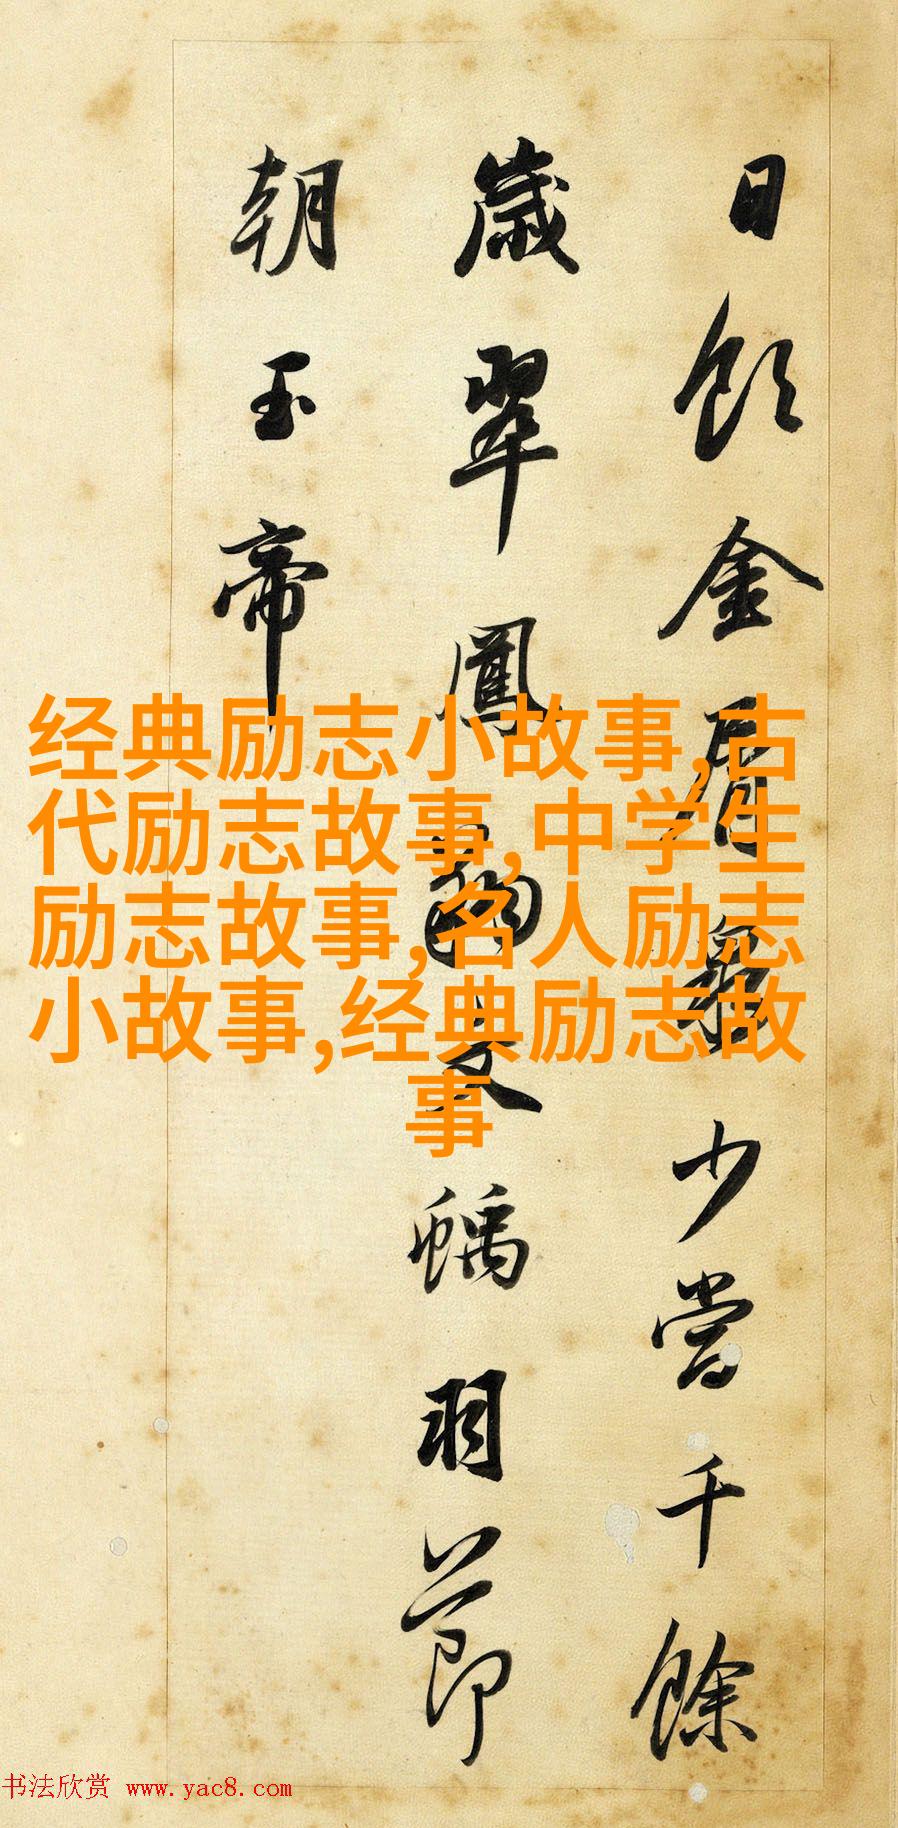 日飲金屑泉少當千餘
歲翠鳳文螭羽節
朝玉帝
经典励志小故事,古
代励志故事,中学生
励志故事,名人励志
小故事,经典励志故
事
书法欣赏 www.yac8.com